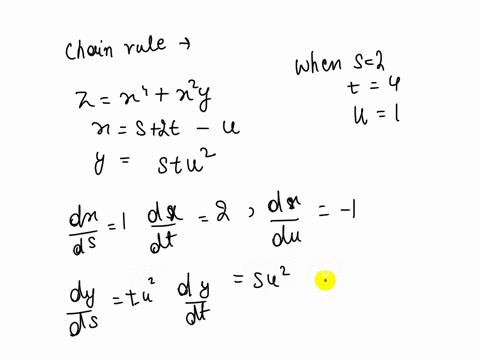 Chain rule →
when s=2
t = 4
u = 1
z = x⁴ + x²y
x = s+2t - u
y = stu²
dx/ds = 1 dx/dt = 2 , dx/du = -1
dy/ds = tu² dy/dt = su²